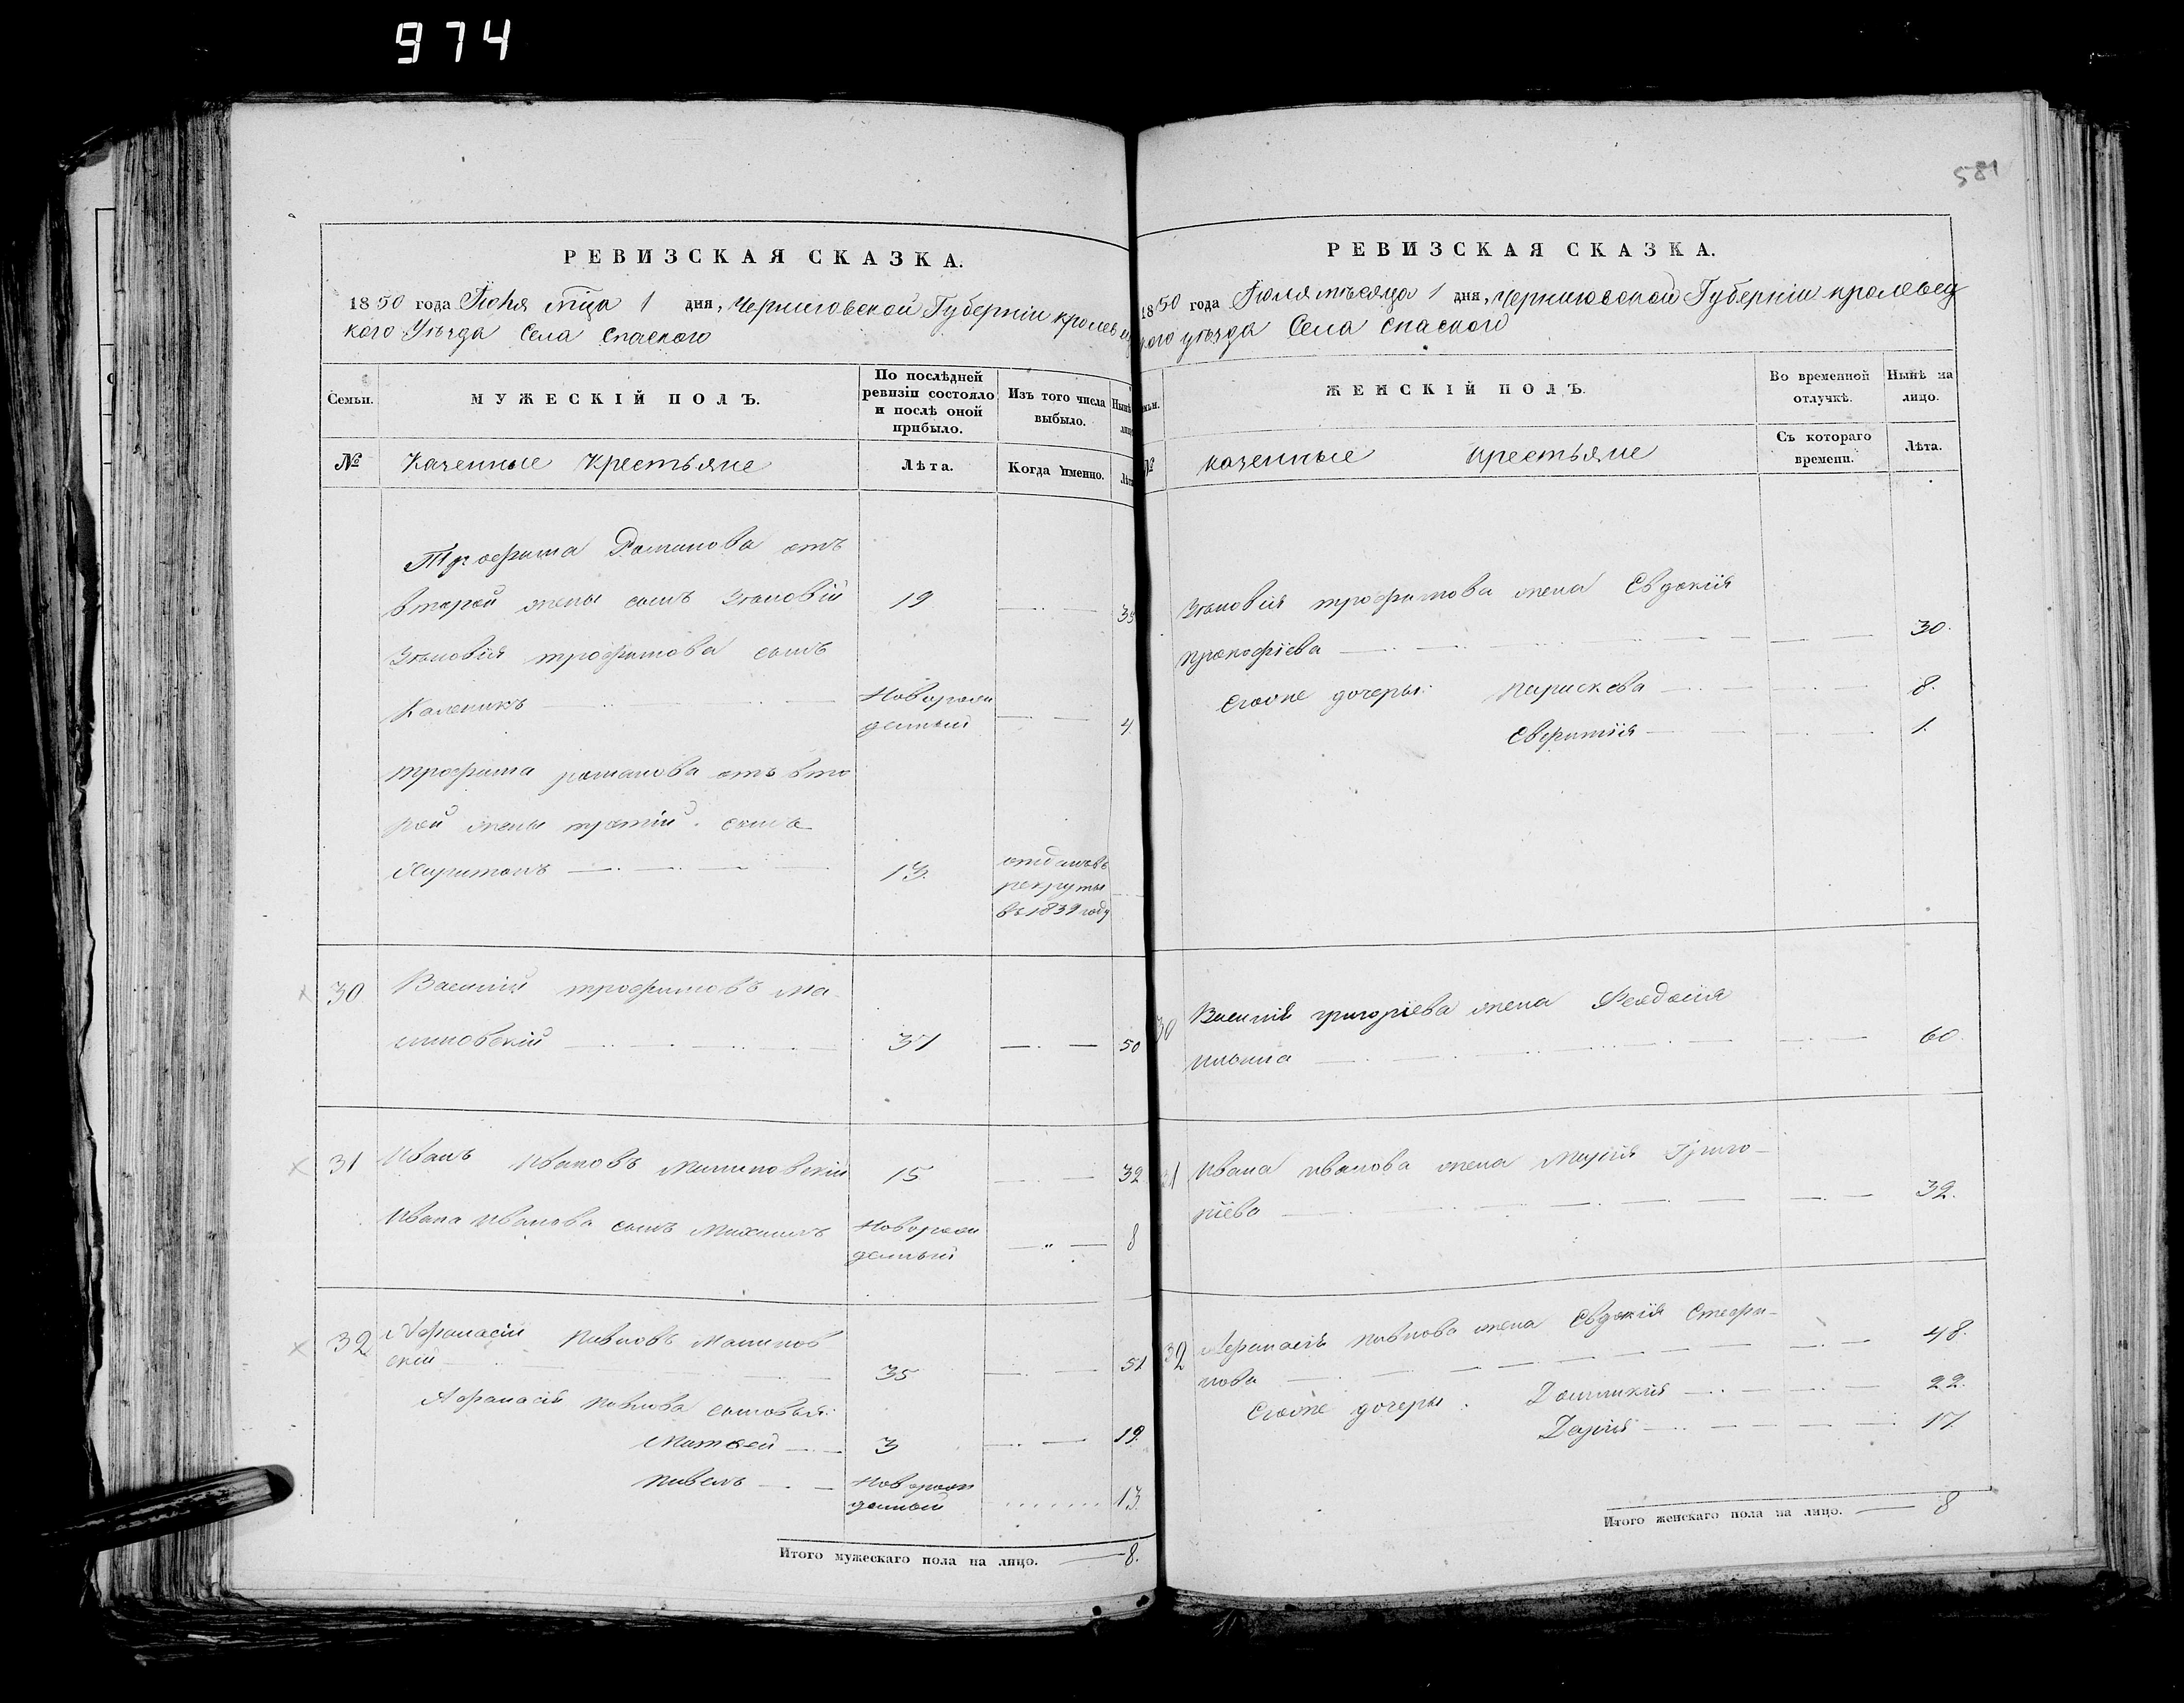 974
581
РЕВИЗСКАЯ СКАЗКА.
1850 года Іюня мца 1 дня, Черниговской Губерніи кролевец
кого Уѣзда Села Спаского
Семьи.
МУЖЕСКІЙ ПОЛЪ.
По послѣдней ревизіи состояло и послѣ оной прибыло.
Изъ того числа выбыло.
№
Казенные Крестьяне
Лѣта.
Когда именно.
Трофима Романова отъ
второй жены сынъ Зѣновій 19 35
Зѣновія трофимова сынъ
Каленикъ Новорож
денный 4
трофима романова отъ вто
рой жены третій сынъ
Харитонъ 13. отданъ въ
рекруты
въ 1839 году
30 Василий трофимовъ Ма
линовскій 31 50
31 Иванъ Ивановъ Малиновскій 15 32
Ивана Иванова сынъ Михаилъ Новорож
денный 8
32 Афанасій Павловъ Малинов
скій 35 51
Афанасія Павлова сыновья:
Матвей 3 19.
Павелъ Новорож
денный 13.
Итого мужескаго пола на лицо. 8.
РЕВИЗСКАЯ СКАЗКА.
1850 года Іюня мѣсяца 1 дня, Черниговской Губерніи кролевец
кого уѣзда Села Спаского
ЖЕНСКІЙ ПОЛЪ.
Во временной отлучкѣ.
Нынѣ на лицо.
№
казенные крестьяне
Съ котораго времени.
Лѣта.
Зѣновія трофимова жена Евдокія
прокофіева 30.
Егоже дочеры: параскева 8.
Евфимія 1.
30 Василія григоріева жена Феодосія
ильина 60.
31 Ивана иванова жена Марія Григо-
ріева 32.
32 Афанасія павлова жена Евдокія Стефа-
нова 48.
Егоже дочеры: Домникія 22.
Дарія 17.
Итого женскаго пола на лицо. 8